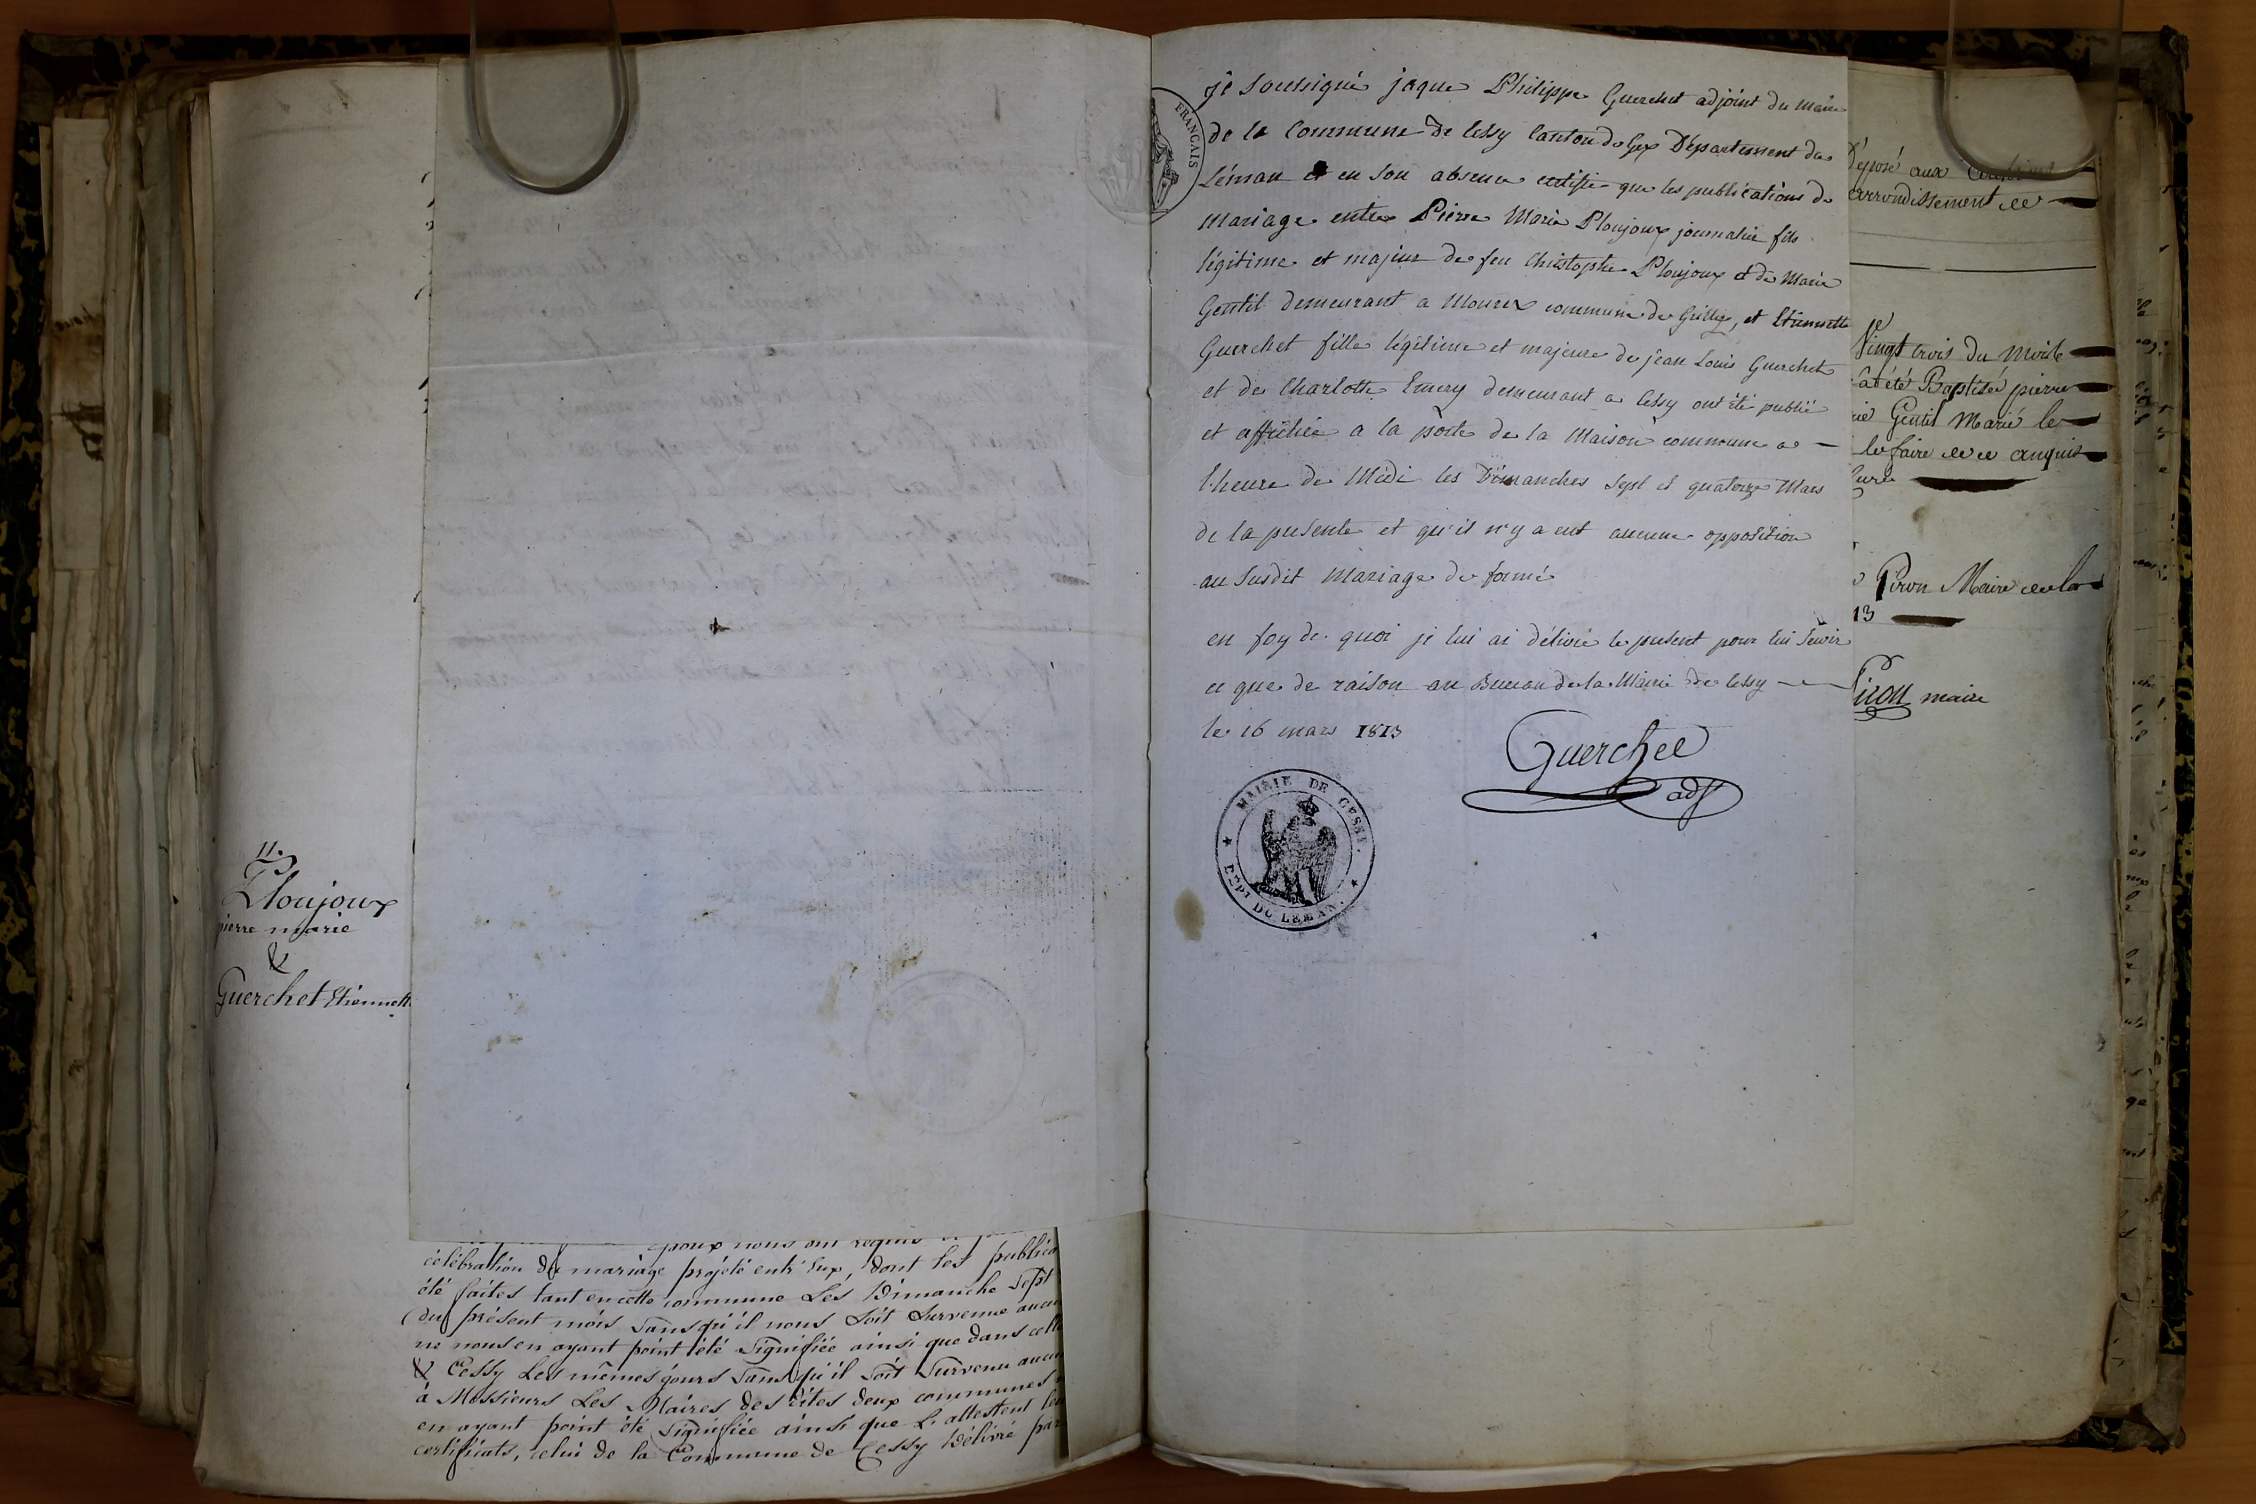 11.
Ploujoux
pierre marie
&
Guerchet Etiennett
célébration du mariage projeté entr'eux, dont les public
été faites tant en cette commune Les Dimanche Sept
du présent mois sans qu'il nous soit survenue aucu
ne nous en ayant point été signifiée ainsi que dans cell
& Cessy Les mêmes jours sans qu'il soit survenu aucu
à Messieurs Les Maires des dites deux communes
en ayant point été signifiée ainsi que l'attestent leu
certificats, celui de la Commune de Cessy Délivré par
FRANÇAIS
je soussigné jaque Philippe Guerchet adjoint du maire
de la Commune de Cessy Canton de Gex Département du
Léman et en son absence certifie que les publications de
mariage entre Pierre Marie Ploujoux journalier fils
légitime et majeur de feu Christophe Ploujoux et de Marie
Gentil demeurant a Mourex commune de Grilly, et Etiennette
Guerchet fille légitime et majeure de jean Louis Guerchet
et de Charlotte Emery demeurant a Cessy ont été publié
et affichée a la porte de la Maison commune a
l'heure de Midi les Dimanches sept et quatorze Mars
de la presente et qu'il n'y a eut aucune opposition
au susdit mariage de formé
en foy de quoi je lui ai délivré le present pour lui servir
ce que de raison au Bureau de la Mairie de Cessy
le 16 mars 1813
Guerchet
adj
MAIRIE DE CESSY.
DEPT DU LEMAN.
Déposé aux
arrondissement de
Vingt trois du Mois de
a été Baptisé pierre
rie Gentil Marié le
le faire de ce anquis
Curé
Piron Maire de la
13
Piron maire